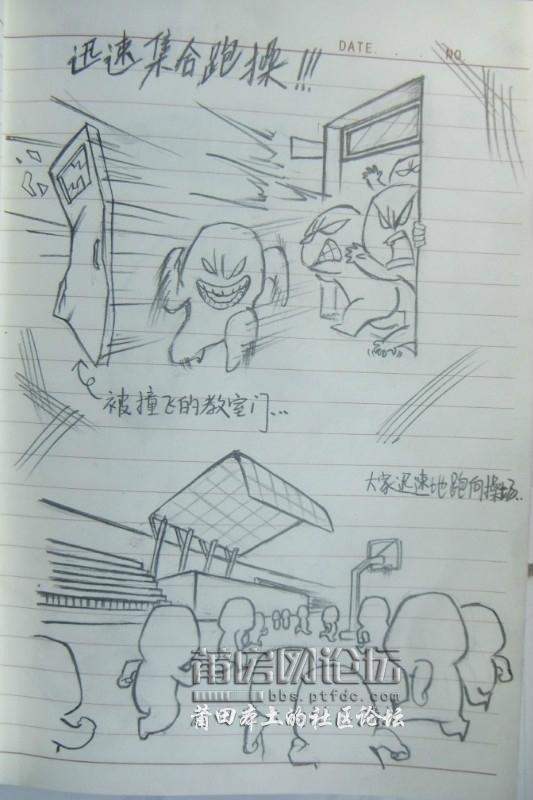 DATE. . . NO.
迅速集合跑操!!!
被撞飞的教室门...
大家迅速地跑向操场..
莆房网论坛
bbs.ptfdc.com
莆田本土的社区论坛